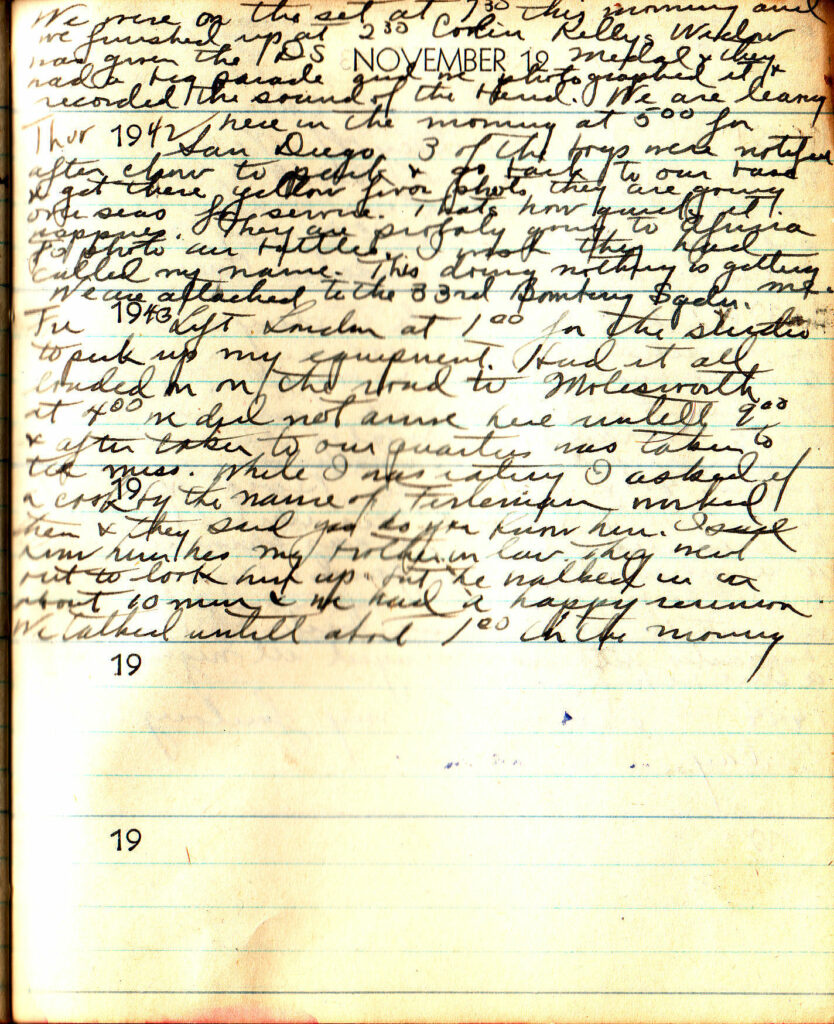 We were on the set at 7 30 this morning and
we finished up at 2 30 Coolin Kelly's Widow
was given the DS Medal & they
NOVEMBER 19
had a big parade and we photographed it &
recorded the sound of the Band. We are leaving
Thur 1942 here in the morning at 5 00 for
San Diego 3 of the boys were notified
after chow to pack & go back to our base
& get there yellow fivor shots, they are going
over seas for service. Thats how quick it
happnes. They are probaly going to Africa
to photo air battles, I wish they had
called my name. This doing nothing is getting me.
We are attached to the 33rd Bombing Sqdn.
Fri 1943 Left London at 1 00 for the studio
to pick up my equipment. Had it all
loaded in on the road to Molesworth
at 4 00 we did not arrive here untell 9 00
& after taken to our quarters was taken to
the mess. While I was eating I asked if
19
a cook by the name of worked
there & they said yes do you know him. I said
know him hes my brother in law. they went
out to look him up but he walked in in
about 10 min & we had a happy reunion
We talked untill about 1 00 in the morning
19
19